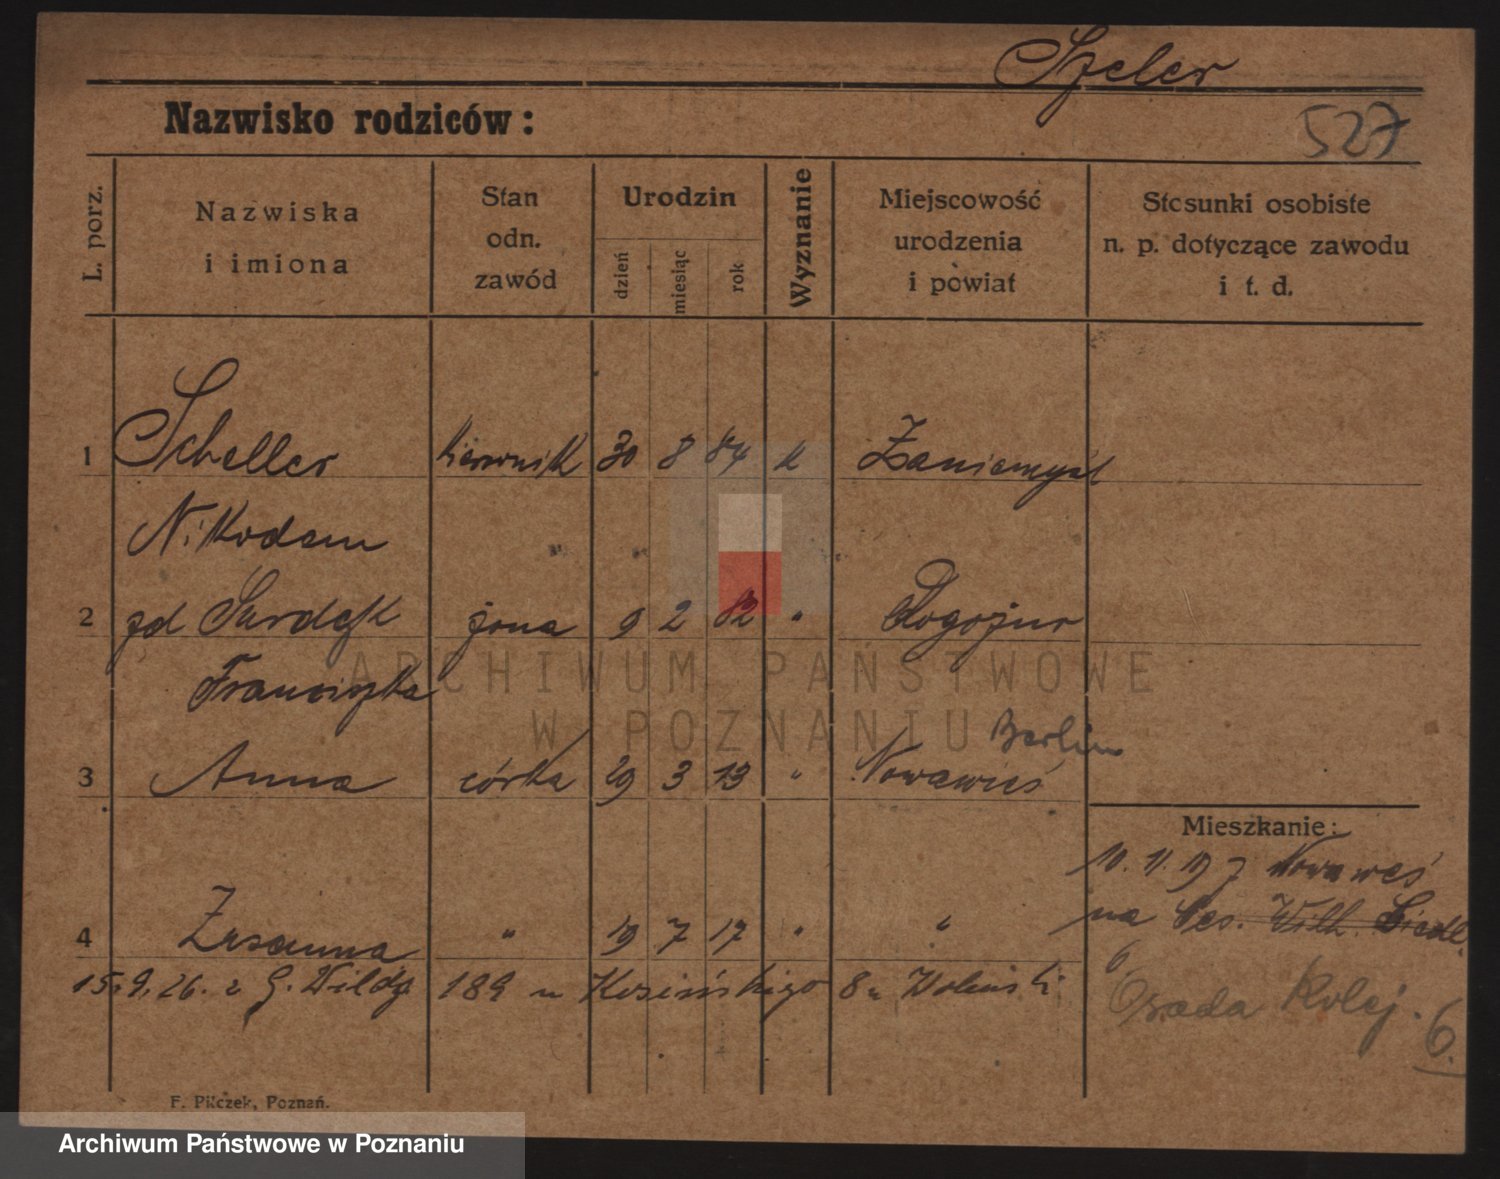 Szeler
Nazwisko rodziców:
527
L. porz.
Nazwiska
i imiona
Stan
odn.
zawód
Urodzin
dzień
miesiąc
rok
Wyznanie
Miejscowość
urodzenia
i powiat
Stosunki osobiste
n. p. dotyczące zawodu
i t. d.
1 Scheller kierownik 30 8 84 k Zaniemyśl
Nikodem
2 zd żona 9 2 82 " Rogoźno
Franciszka
Berlin
3 Anna córka 29 3 13 " Nowawieś
Mieszkanie:
10. 11. 19 Nowawieś
na Wilh. Siedl.
4 Zusanna " 19 7 17 " "
6
15.9.26. z G. Wilda 189 u Kosińskiego 8 u Woliński
Osada Kolej. 6.
F. Pilczek, Poznań.
ARCHIWUM PAŃSTWOWE
W POZNANIU
Archiwum Państwowe w Poznaniu